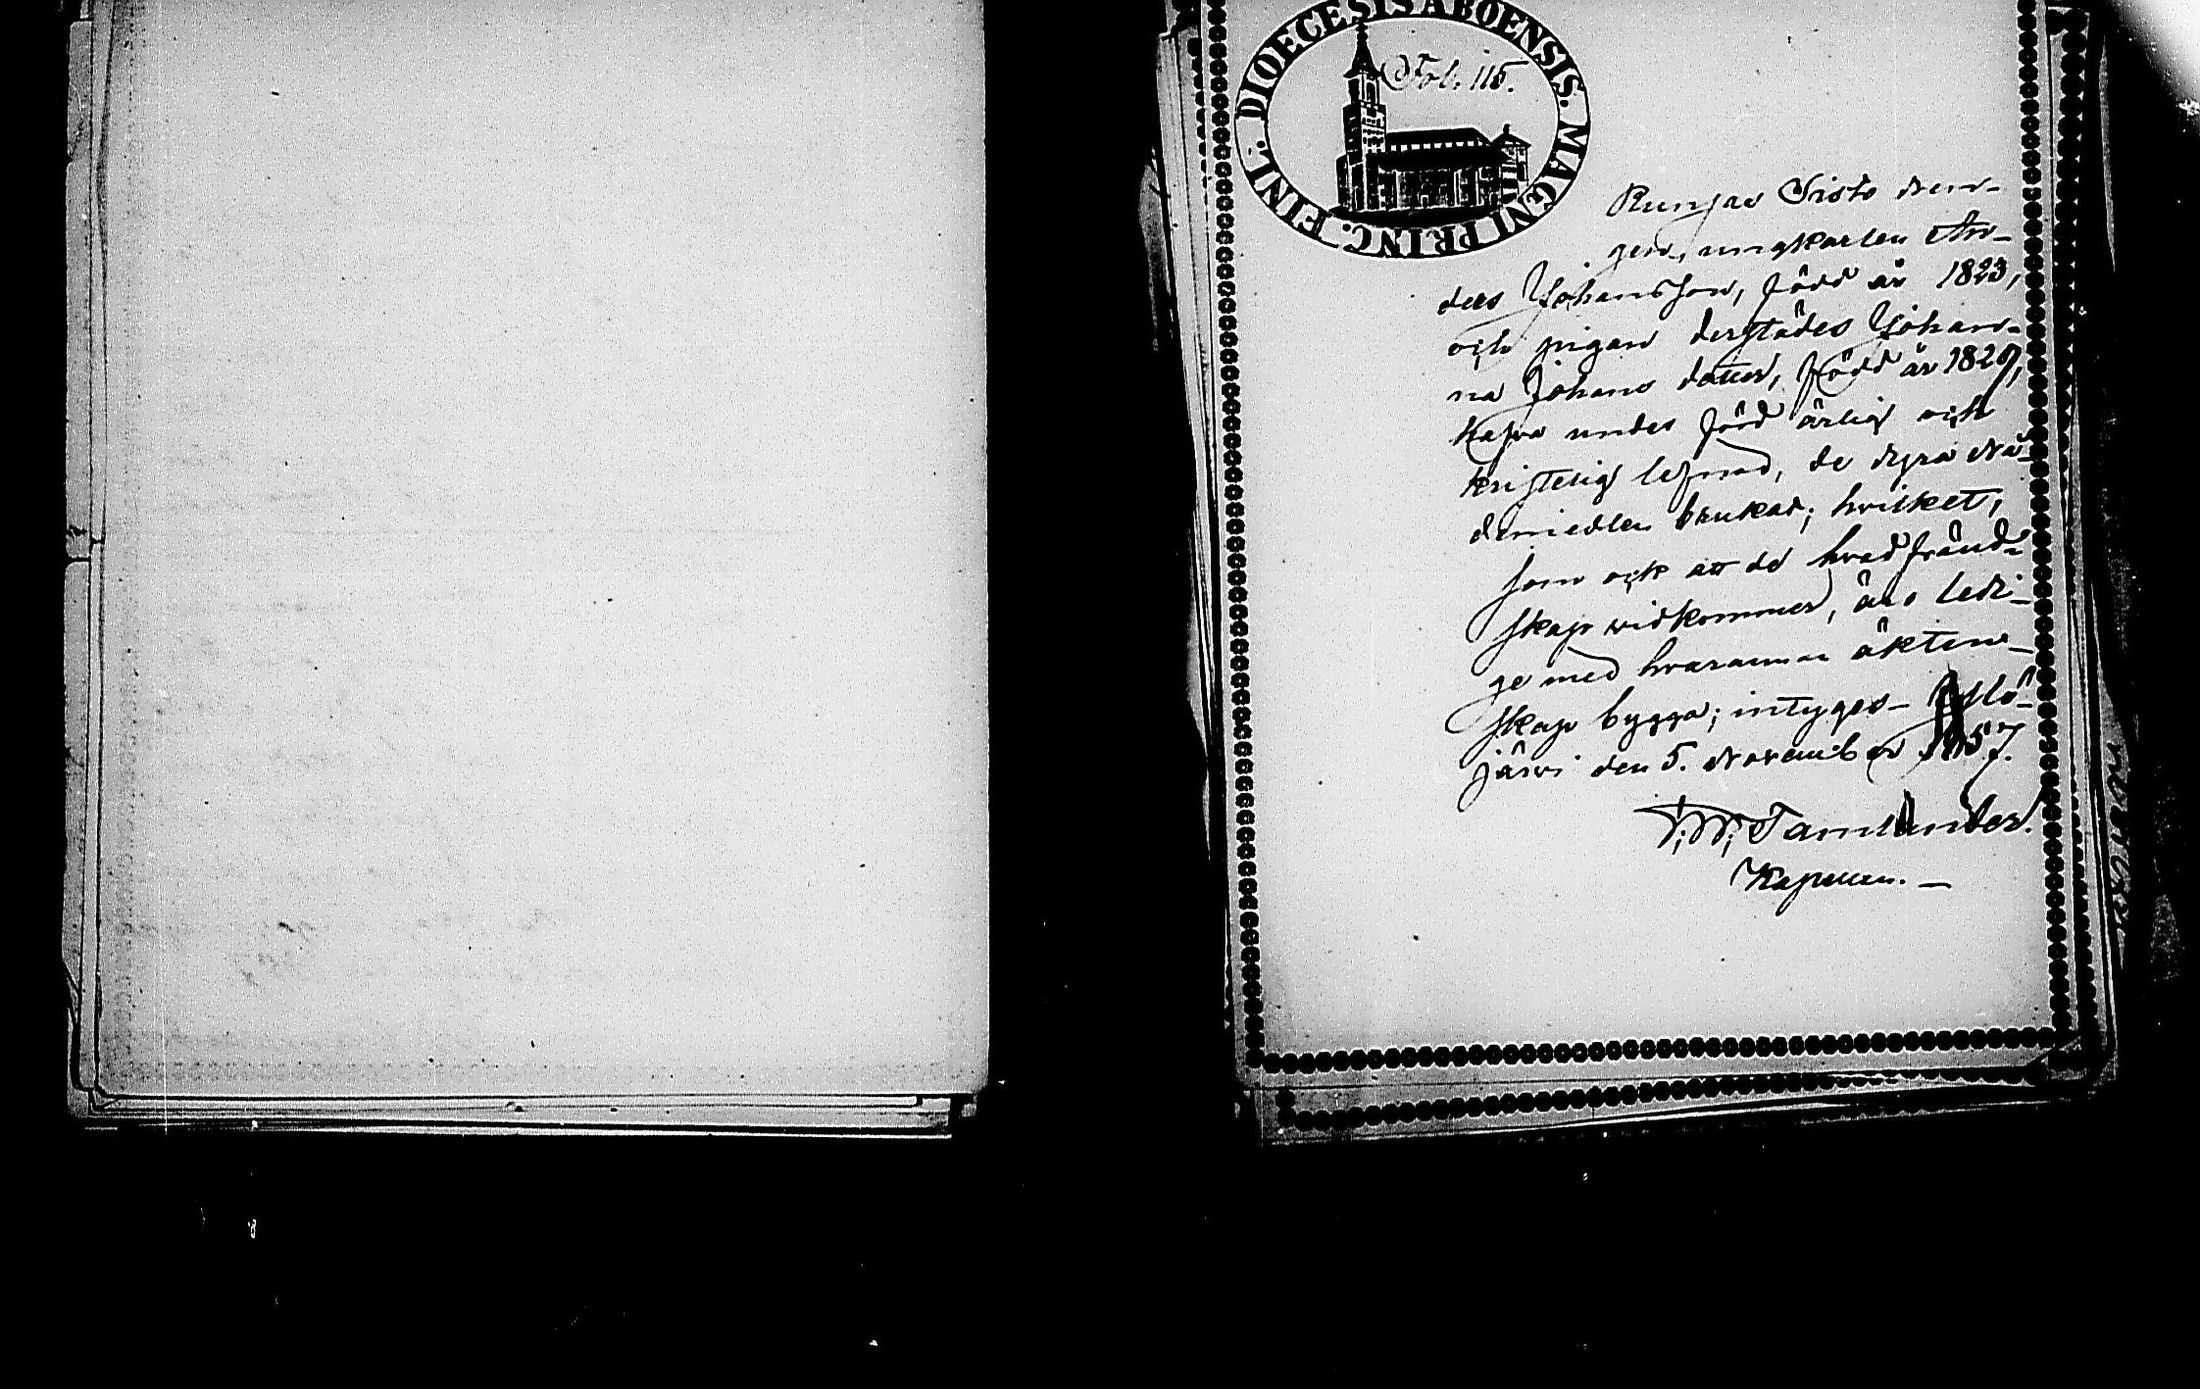 DIOECESIS ABOENSIS. MAGNI PRINC. FINL.
Fol. 115.
Runjas Sisto dren-
gen, ungkarlen An-
ders Johansson, född år 1823,
och pigan derstädes Johan-
na Johans dotter, född år 182
hafva under förd ärlig och
kristelig lefnad, de dyra Nå-
demedlen brukat; hvilket,
som ock att de hvad fränd-
skap widkommer, äro ledi-
ge med hvarannan äkten-
skap bygga; intygas- Ylö-
järvi den 5. November 1857.
Tamlander.
Kapellan. —